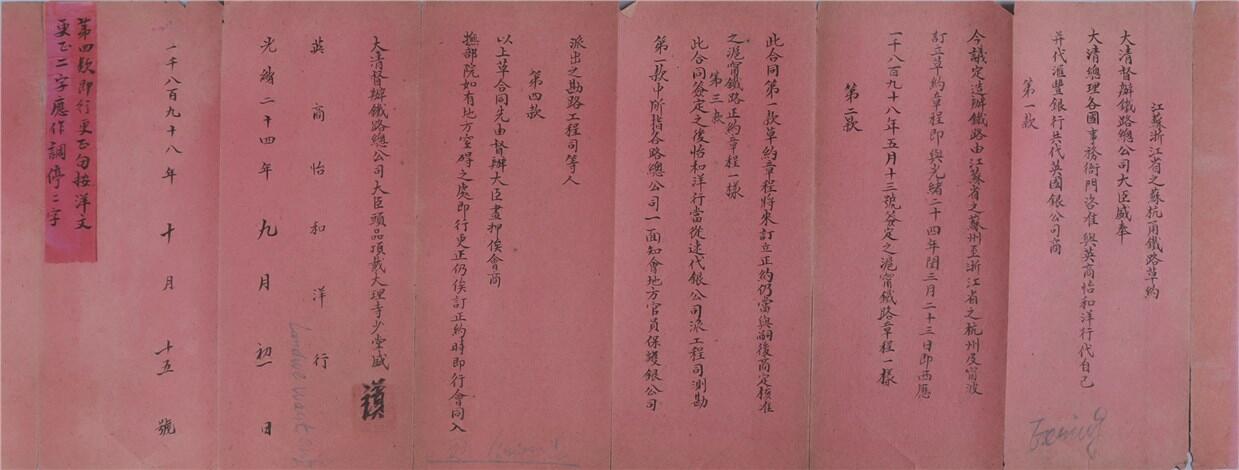 江蘇浙江省之蘇杭甬鐵路草約
大清督辦鐵路總公司大臣盛奉
大清總理各國事務衙門咨准與英商怡和洋行代自己
并代滙豐銀行共代英國銀公司商
第一款
今議定造辦鐵路由江蘇省之蘇州至浙江省之杭州及甯波
訂立草約章程即與光緒二十四年閏三月二十三日即西應
一千八百九十八年五月十三號簽定之滬甯鐵路章程一樣
第二款
此合同第一款草約章程將來訂立正約仍當與嗣後商定核准
之滬甯鐵路正約章程一樣
第三款
此合同簽定之後怡和洋行當從速代銀公司派工程司測勘
第一款中所指各路總公司一面知會地方官員保護銀公司
派出之勘路工程司等人
第四款
以上草合同先由督辦大臣畫押俟會商
撫部院如有地方窒礙之處即行更正仍俟訂正約時即行會同入
大清督辦鐵路總公司大臣頭品頂戴大理寺少堂盛
英商怡和洋行
光緒二十四年九月初一日
一千八百九十八年十月十五號
第四款即行更正句按洋文
更正二字應作調停二字